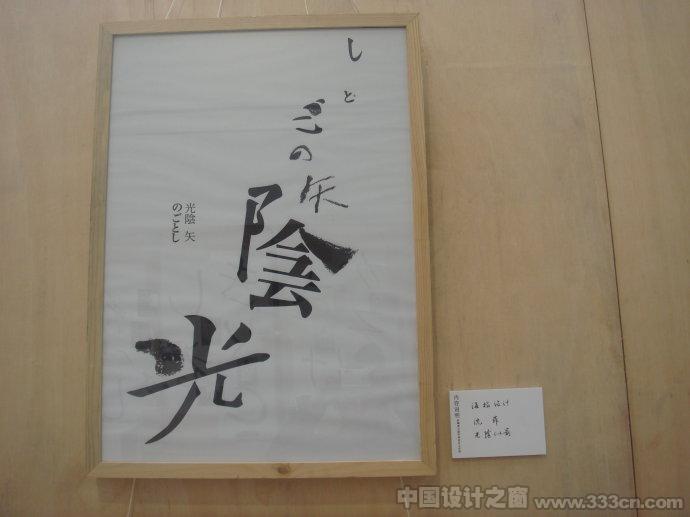 光陰矢のごとし
光陰 矢
のごとし
海报设计
光陰似箭
中国设计之窗 www.333cn.com